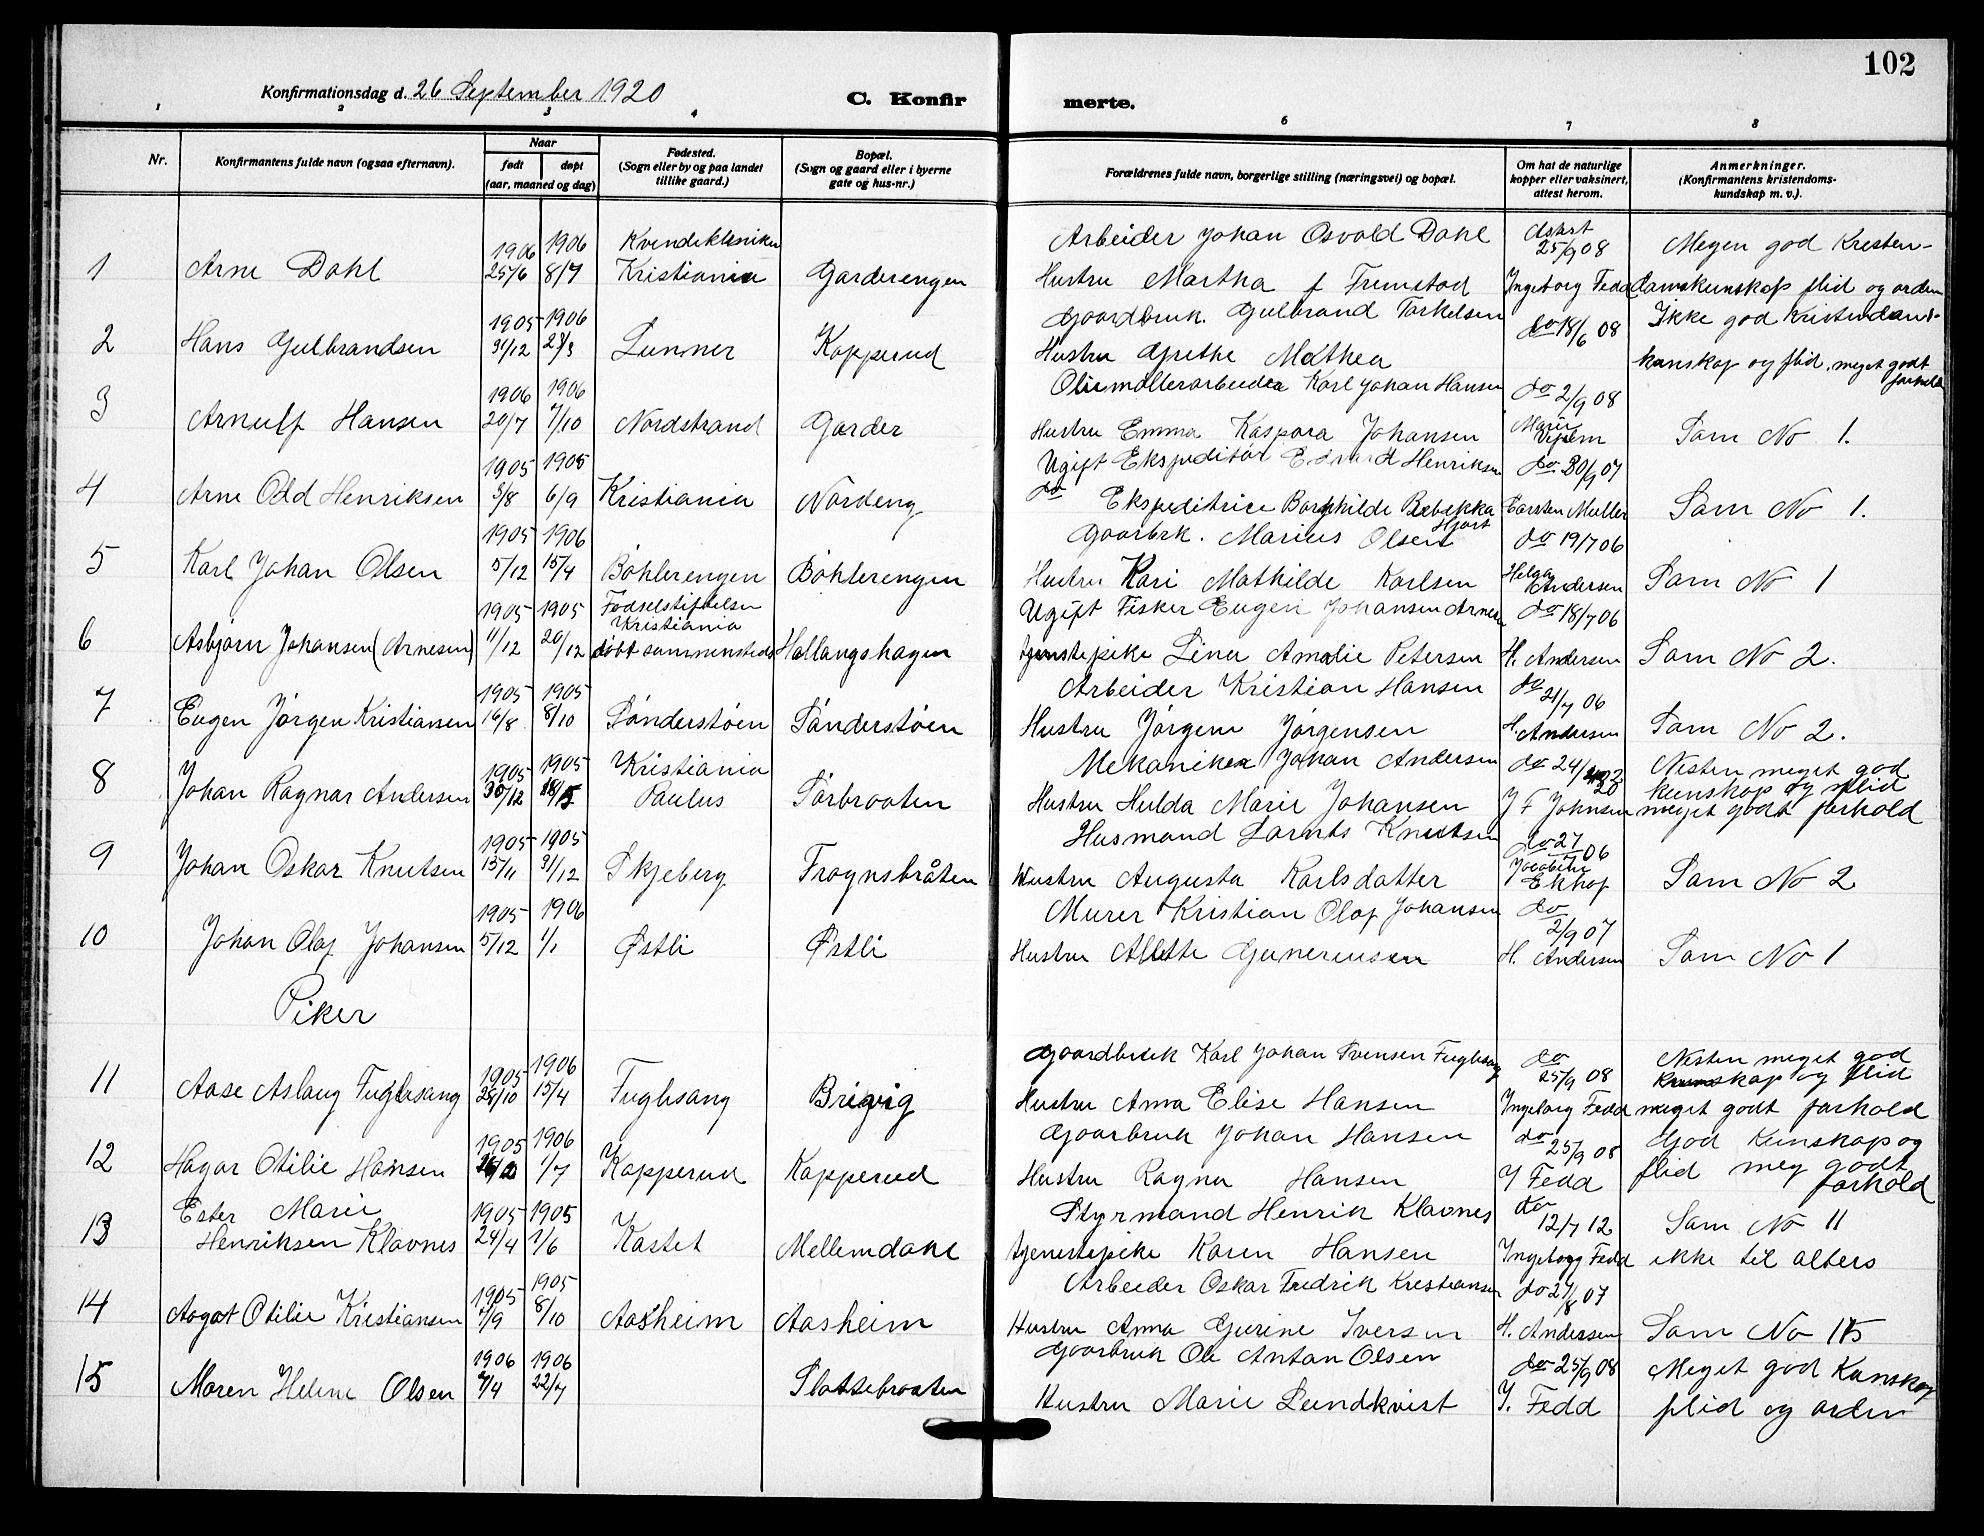 102
Konfirmationsdag d. 26 September 1920
C. Konfir merte.
1 2 3 4 6 7 8
Nr.
Konfirmantens fulde navn (ogsaa efternavn).
Naar
født døpt
(aar, maaned og dag)
Fødested.
(Sogn eller by og paa landet
tillike gaard.)
Bopæl.
(Sogn og gaard eller i byerne
gate og hus-nr.)
Forældrenes fulde navn, borgerlige stilling (næringsvei) og bopæl.
Om hat de naturlige
kopper eller vaksinert,
attest herom.
Anmerkninger.
(Konfirmantens kristendoms-
kundskap m. v.).
1906 1906 Kvindekliniken Arbeider Johan Osvald Dahl Attest 25/9 08 Megen god Kristen-
1 Arne Dahl 25/6 8/7 Kristiania Garderengen Hustru Martha f Tremstad Ingeborg Fedd domskunskap flid og orden
1905 1906 Gaardbruk. Gulbrand Torkelsen do 18/6 08 Ikke god Kristendoms-
2 Hans Gulbrandsen 31/12 28/3 Lunner Kopperud Hustru Grethe Mathea kunskap og flid, meget godt forhold
1906 1906 Oliemøllerarbeider Karl Johan Hansen do 2/9 08
3 Arnulf Hansen 20/7 7/10 Nordstrand Garder Hustru Emma Kaspara Johansen Marie Som No 1.
1905 1905 Ugift Ekspeditør Edvard Henriksen do 30/9 07
4 Arne Odd Henriksen 3/8 6/9 Kristiania Nordeng do Ekspeditrice Borghilde Rebekka Hjort Carsten Muller Som No 1.
1905 1906 Gaarbrk. Marius Olsen do 19/7 06
5 Karl Johan Olsen 5/12 15/4 Bøhlerengen Bøhlerengen Hustru Kari Mathilde Karlsen Helga Andersen Som No 1
1905 1905 Fødselstiftelsen Kristiania Ugift Fisker Eugen Johansen Arnesen do 18/7 06
6 Asbjørn Johansen (Arnesen) 11/12 20/12 døbt sammensteds Hallangshagen tjenstepike Lina Amalie Petersen H. Andersen Som No 2.
1905 1905 Arbeider Kristian Hansen do 21/7 06
7 Eugen Jørgen Kristiansen 16/8 8/10 Sønderstøen Sønderstøen Hustru Jørgine Jørgensen H. Andersen Som No 2.
1905 1905 Kristiania Mekaniker Johan Andersen do 24/ Nesten meget god
8 Johan Ragnar Andersen 30/12 Paulus Sørbraaten Hustru Hulda Marie Johansen J F Johnsen kunskap og flid meget godt forhold
1905 1905 Husmand Larnts Knutsen do 27 06
9 Johan Oskar Knutsen 13/11 31/12 Skjeberg Frognsbråten Hustru Augusta Karlsdatter Som No 2
1905 1906 Murer Kristian Olaf Johansen do 2/9 07
10 Johan Olaf Johansen 5/12 1/1 Østli Østli Hustru Alette Gunerinsen H. Andersen Som No 1
Piker
1905 1906 Gaardbruk Karl Johan Svensen Fuglesang do 25/9 08 Nesten meget god
11 Aase Aslaug Fuglesang 28/10 15/4 Fuglesang Brevig Hustru Anna Elise Hansen Ingeborg Fedd kunskap og flid meget godt forhold
1905 1906 Gaarbruk Johan Hansen do 25/9 08 God Kunskap og
12 Hagar Otilie Hansen 1/7 Kopperud Kopperud Hustru Ragna Hansen J Fedd flid meg godt forhold
Ester Marie 1905 1905 Styrmand Henrik Klavnes do 12/7 12 Som No 11
13 Henriksen Klavnes 24/4 1/6 Kastet Mellemdahl tjenestepike Karen Hansen Ingeborg Fedd ikke til alters
1905 1905 Arbeider Oskar Fredrik Kristiansen do 27/8 07
14 Aagot Otilie Kristiansen 7/9 8/10 Aasheim Aasheim Hustru Anna Gurine Iversen H. Andersen Som No 15
1906 1906 Gaarbruk Ole Anton Olsen do 25/9 08 Meget god Kunskap
15 Maren Helene Olsen 4/4 22/7 Slottebraaten Hustru Marie Lundkvist J. Fedd flid og orden